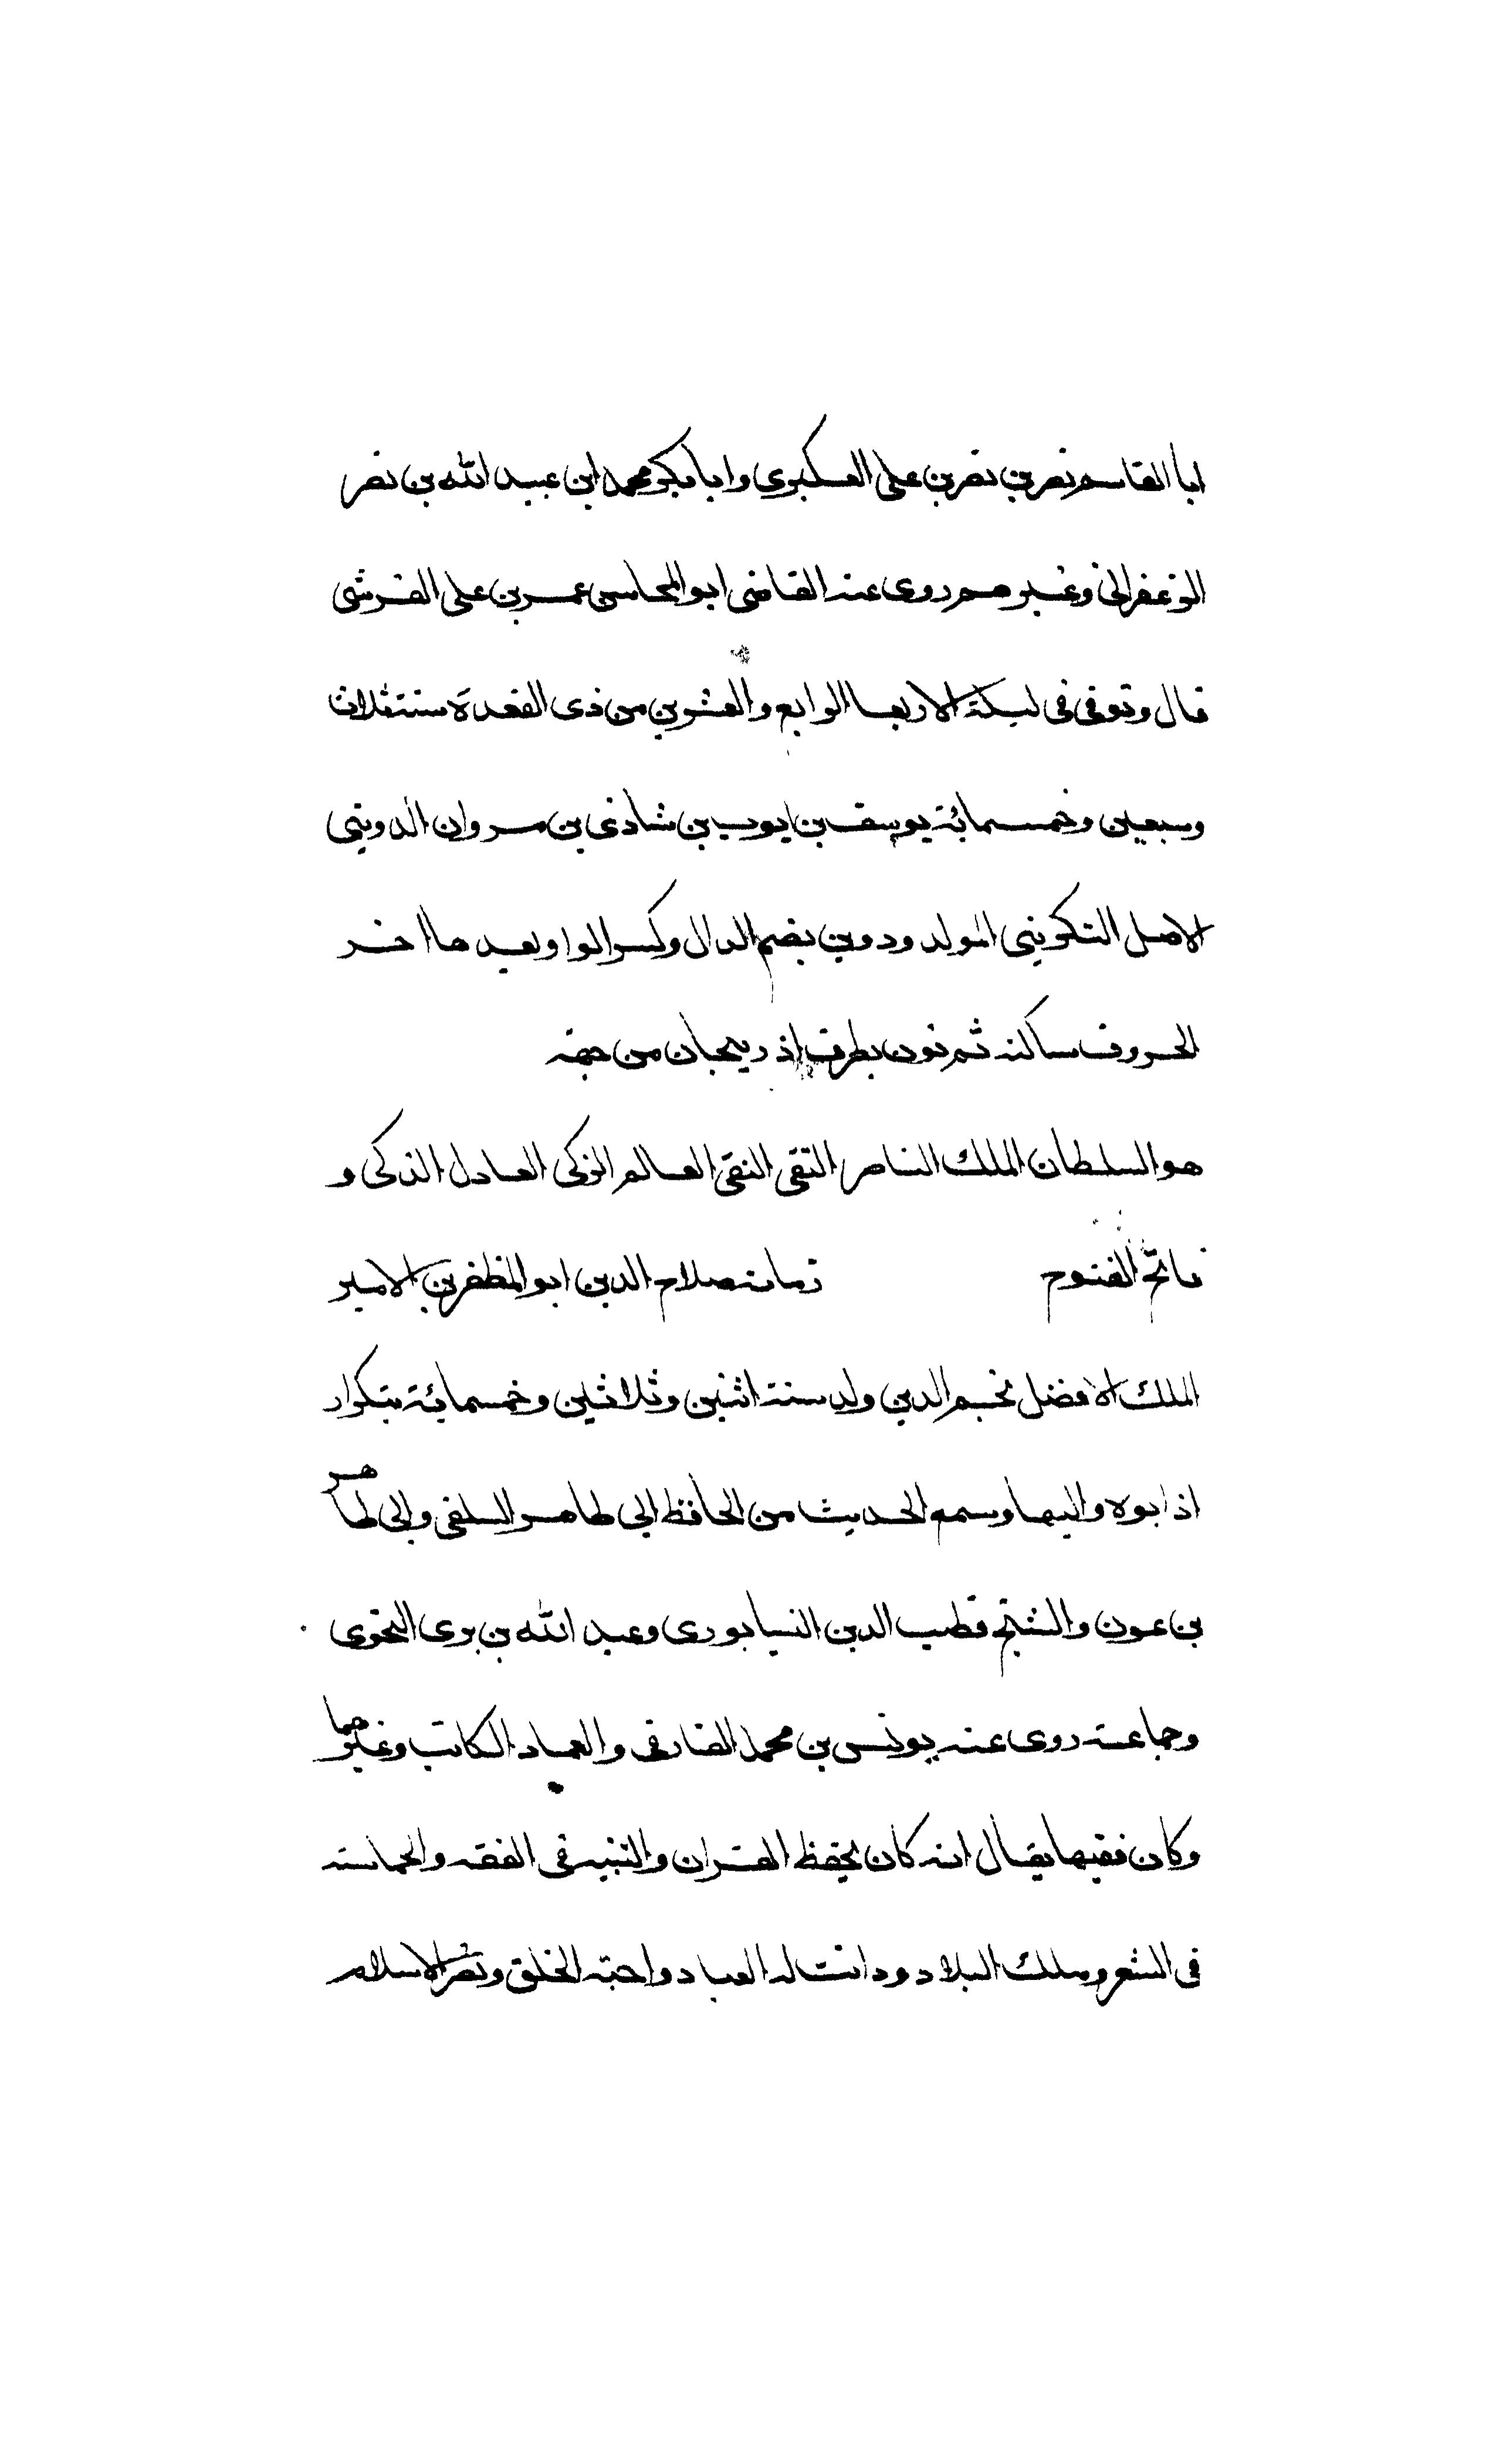 ابا القاسم نصر بن نصر بن على العكبرى وابا بكر محمد ابن عبيد الله بن نصر
الزعفرانى وغيرهم روى عنه القاضى ابو المحاسن عمر بن على القرشى
قال وتوفى فى ليلة الاربعا الرابع والعشرين من ذى القعدة سنة ثلاث
وسبعين وخمسمائة يوسف بن ايوب بن شاذى بن مروان الدوينى
الاصل التكرينى المولد ودوين بضم الدال وكسر الواو وبعدها اخر
الحروف ساكنه ثم نون بطرف اذربيجان من جهة
هو السلطان الملك الناصر التقى النقى العالم الزكى العادل الذكى و
فاتح الفتوح زمانه صلاح الدين ابو المظفر بن الامير
الملك الافضل نجم الدين ولد سنة اثنين وثلاثين وخمسمائة بتكرار
اذ ابوه واليها وسمع الحديث من الحافظ ابى طاهر السلفى وابى طاهر
بن عون والشيخ قطب الدين النسيابورى وعبد الله بن برى النحوى
وجماعة روى عنه يونس بن محمد الفارقى والعماد الكاتب وغيرهما
وكان فقيها يقال انه كان يحفظ القران والتنبيه فى الفقه والحماسة
فى الشعر وملك البلاد ودانت له العباد واحبه الخلق ونصر الاسلام